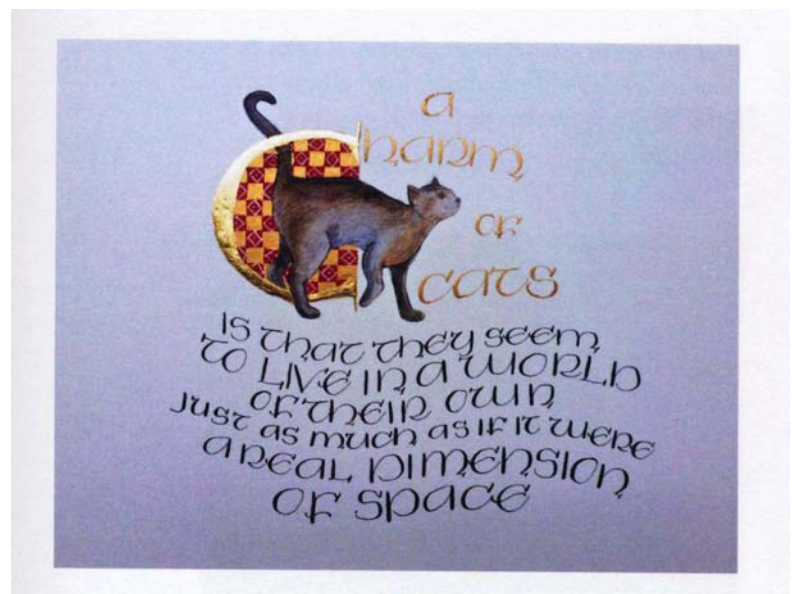 a
Charm
of
cats
is that they seem
to live in a world
of their own
just as much as if it were
a real dimension
of space